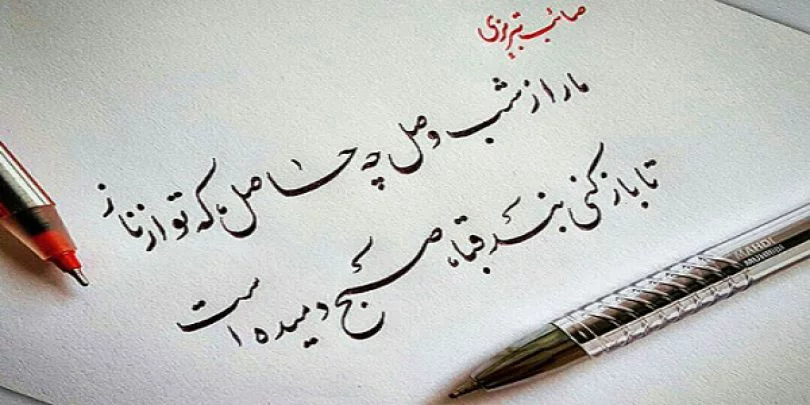 صائب تبریزی
ما را از شب وصل چه حاصل، که تو از ناز
تا باز کنی بند قبا، صبح دمیده است
MAHDI